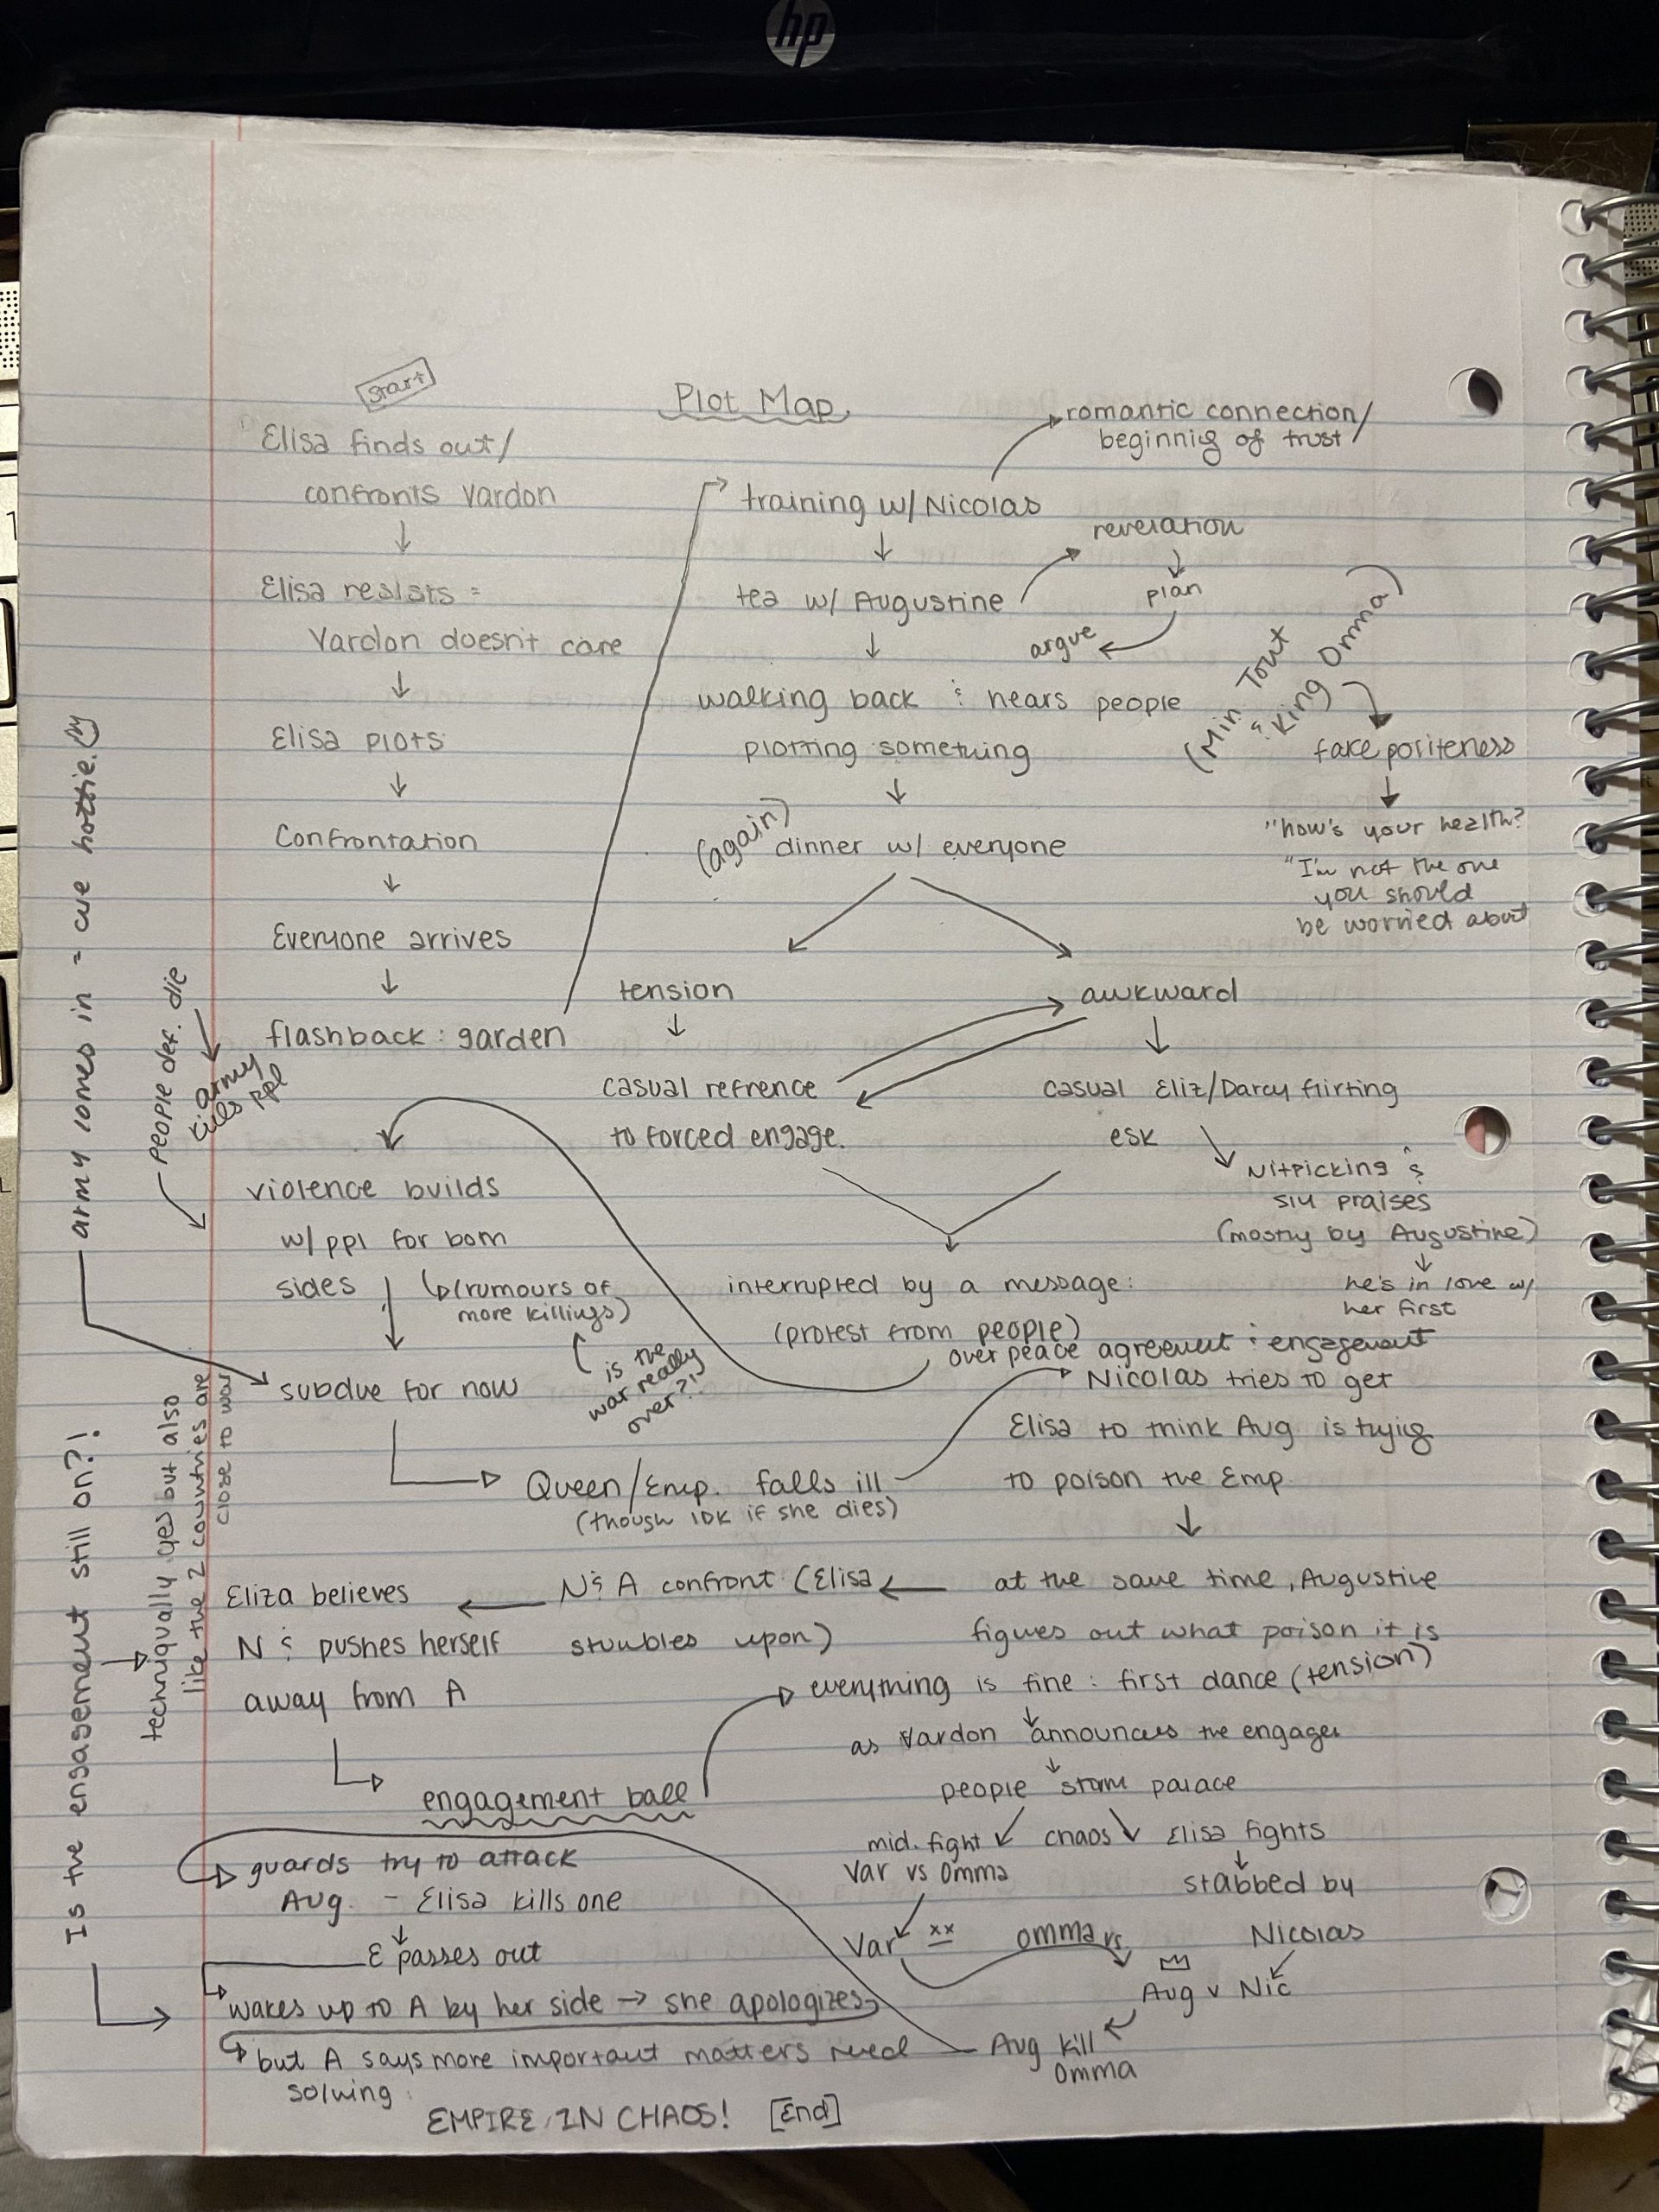 hp
Start
Plot Map
Elisa finds out/
confronts Vardon
Elisa resists =
Vardon doesn't care
Elisa plots
Confrontation
Everyone arrives
flashback: garden
training w/ Nicolas
romantic connection/
beginnig of trust
tea w/ Augustine
revelation
plan
argue
walking back & hears people
plotting something
(again)
dinner w/ everyone
(Min Tout
& King Omma)
fake politeness
"how's your health?
"I'm not the one
you should
be worried about
tension
awkward
casual refrence
to forced engage.
casual Eliz/Darcy flirting
esk
Nitpicking &
sly praises
(mostly by Augustine)
he's in love w/
her first
interrupted by a message:
(protest from people)
over peace agreement & engagement
violence builds
w/ ppl for both
sides
(rumours of
more killings)
is the
war really
over?!?
people def. die
army
kills ppl
army comes in - cue hottie.
subdue for now
Queen/Emp. falls ill
(though IDK if she dies)
Nicolas tries to get
Elisa to think Aug is tryig
to poison the Emp.
at the same time, Augustine
figues out what poison it is
N & A confront (Elisa
stumbles upon)
Eliza believes
N & pushes herself
away from A
Is the engagement still on?!
techniqually yes but also
like the 2 countries are
close to war
engagement ball
everything is fine: first dance (tension)
as Vardon announces the engage
people storm palace
mid. fight
chaos
Elisa fights
Var vs Omma
stabbed by
Nicolas
Var xx
Omma vs
Aug v Nic
Aug kill
Omma
guards try to attack
Aug. - Elisa kills one
E passes out
wakes up to A by her side → she apologizes
but A says more important matters need
solving
EMPIRE IN CHAOS! [End]